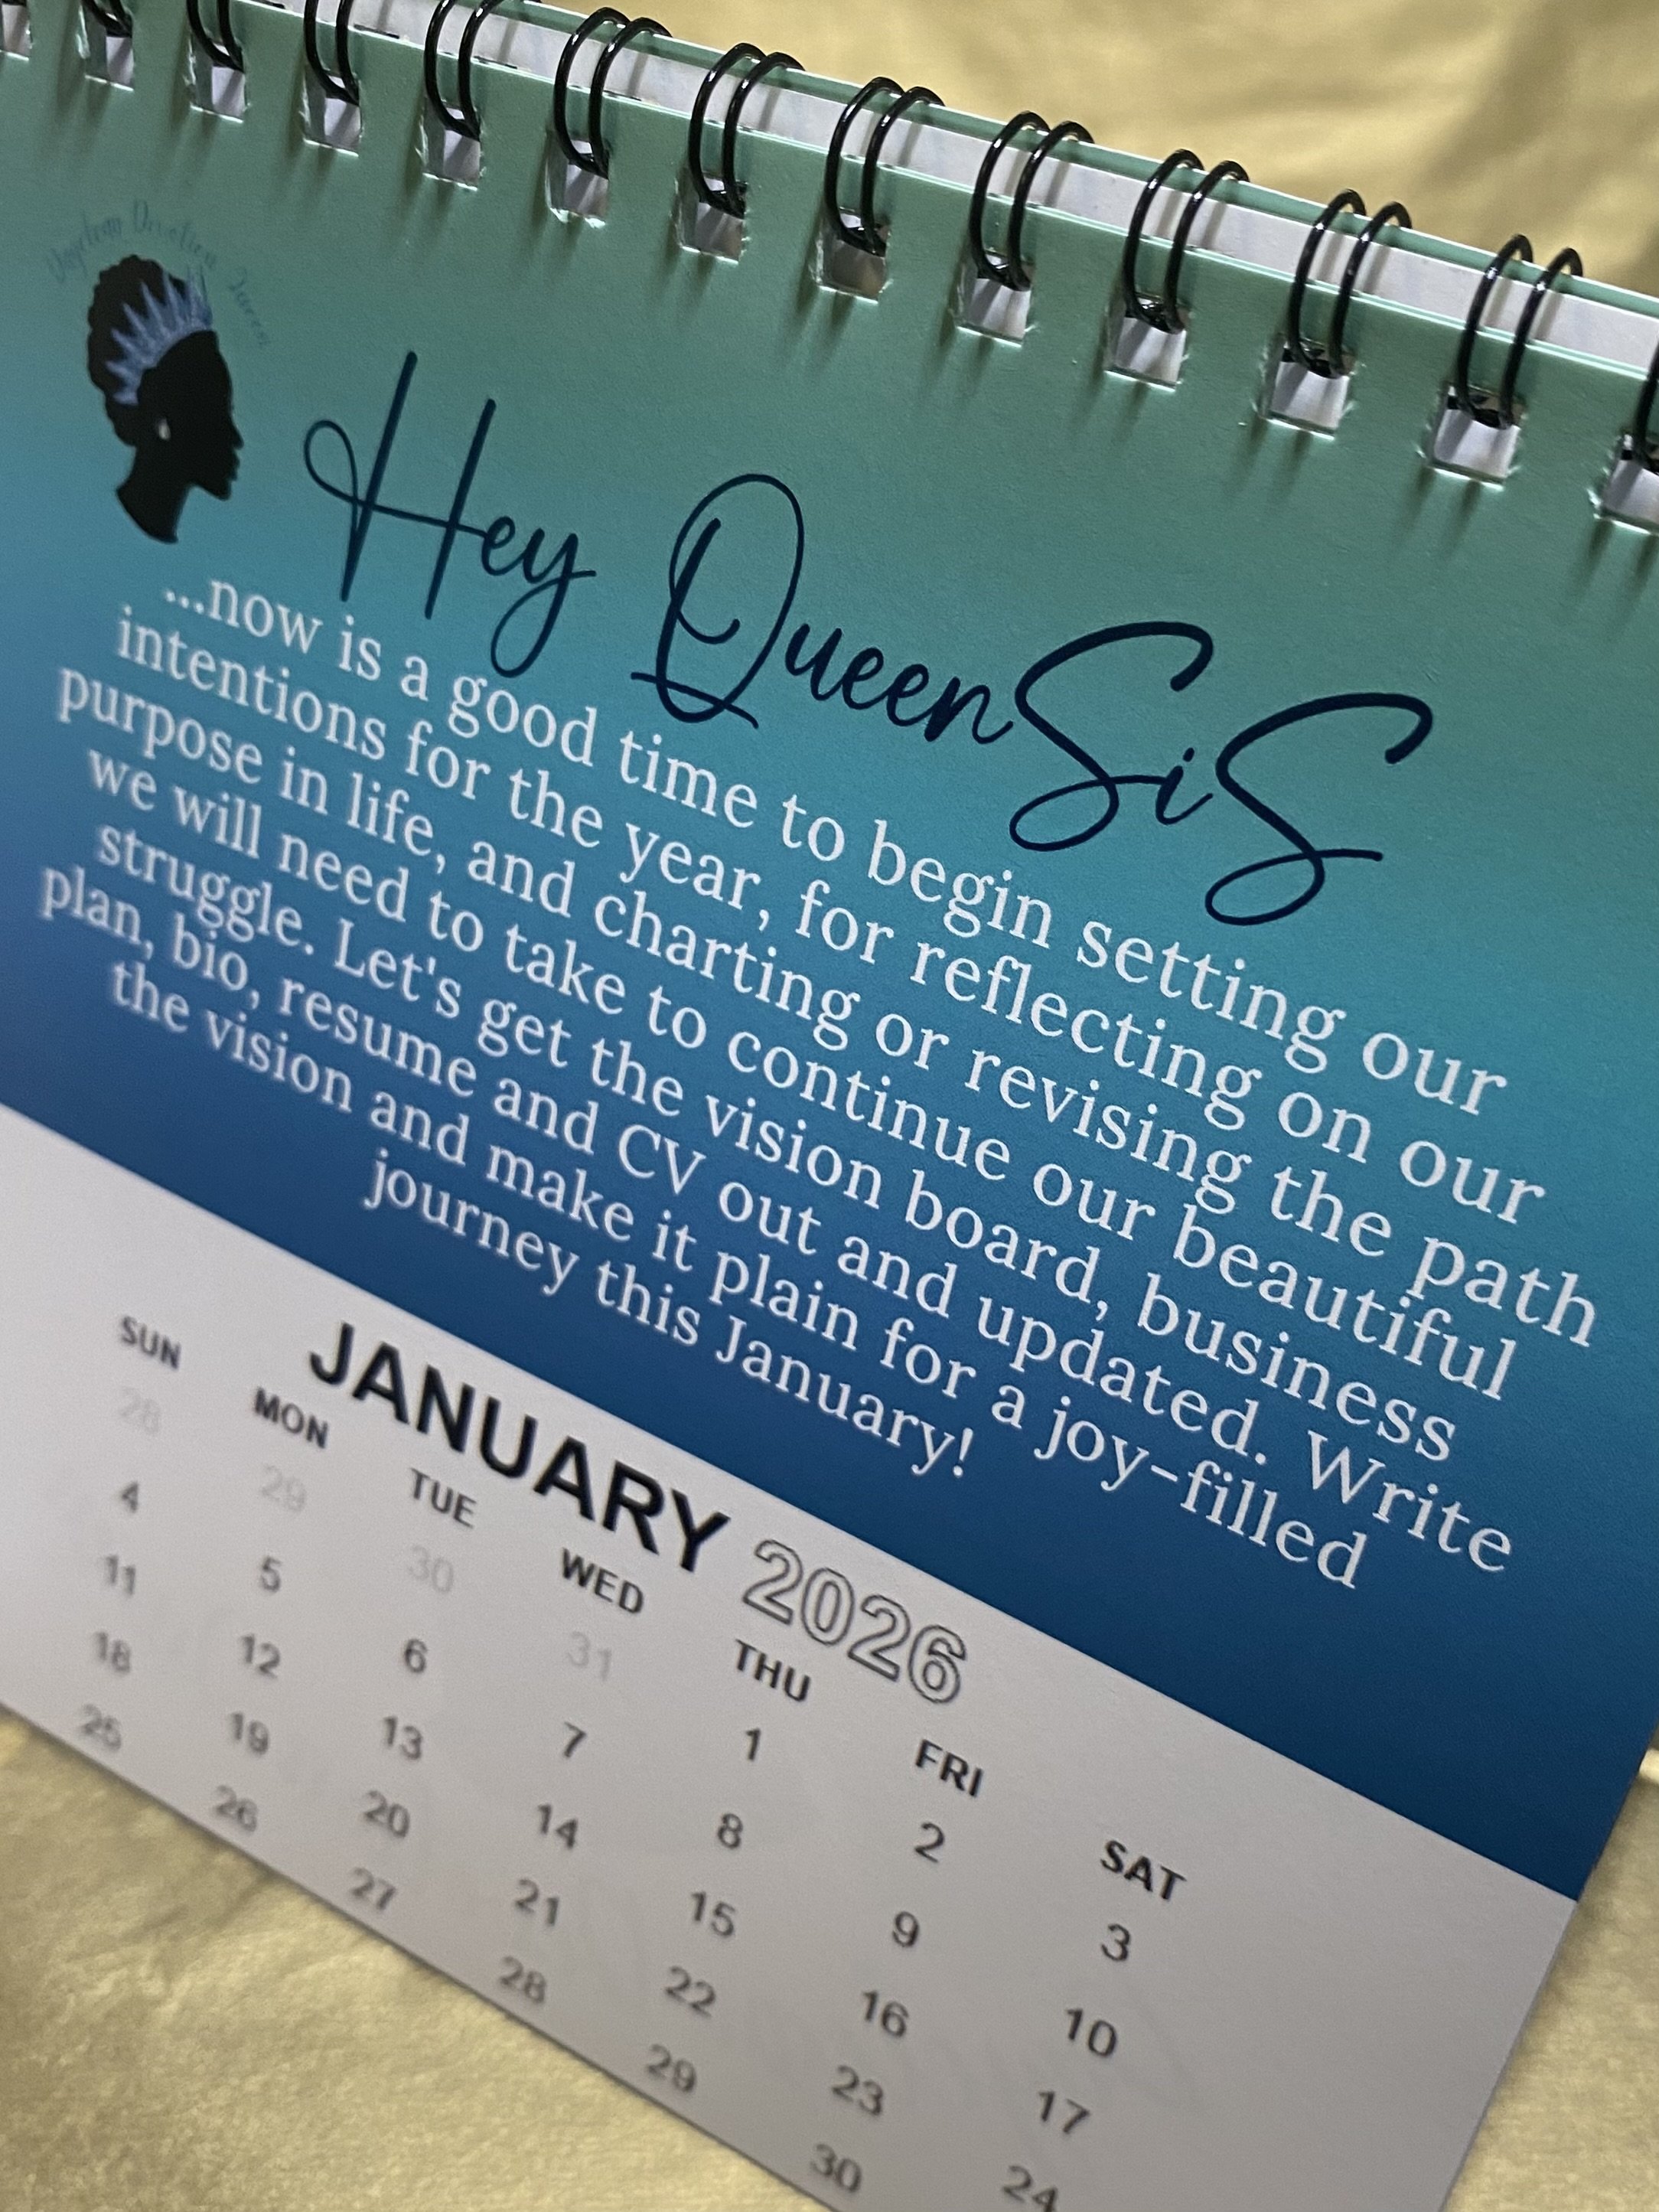 Hey QueenSiS
...now is a good time to begin setting our
intentions for the year, for reflecting on our
purpose in life, and charting or revising the path
we will need to take to continue our beautiful
struggle. Let's get the vision board, business
plan, bio, resume and CV out and updated. Write
the vision and make it plain for a joy-filled
journey this January!
JANUARY 2026
SUN MON TUE WED THU FRI SAT
28 29 30 31 1 2 3
4 5 6 7 8 9 10
11 12 13 14 15 16 17
18 19 20 21 22 23 24
25 26 27 28 29 30